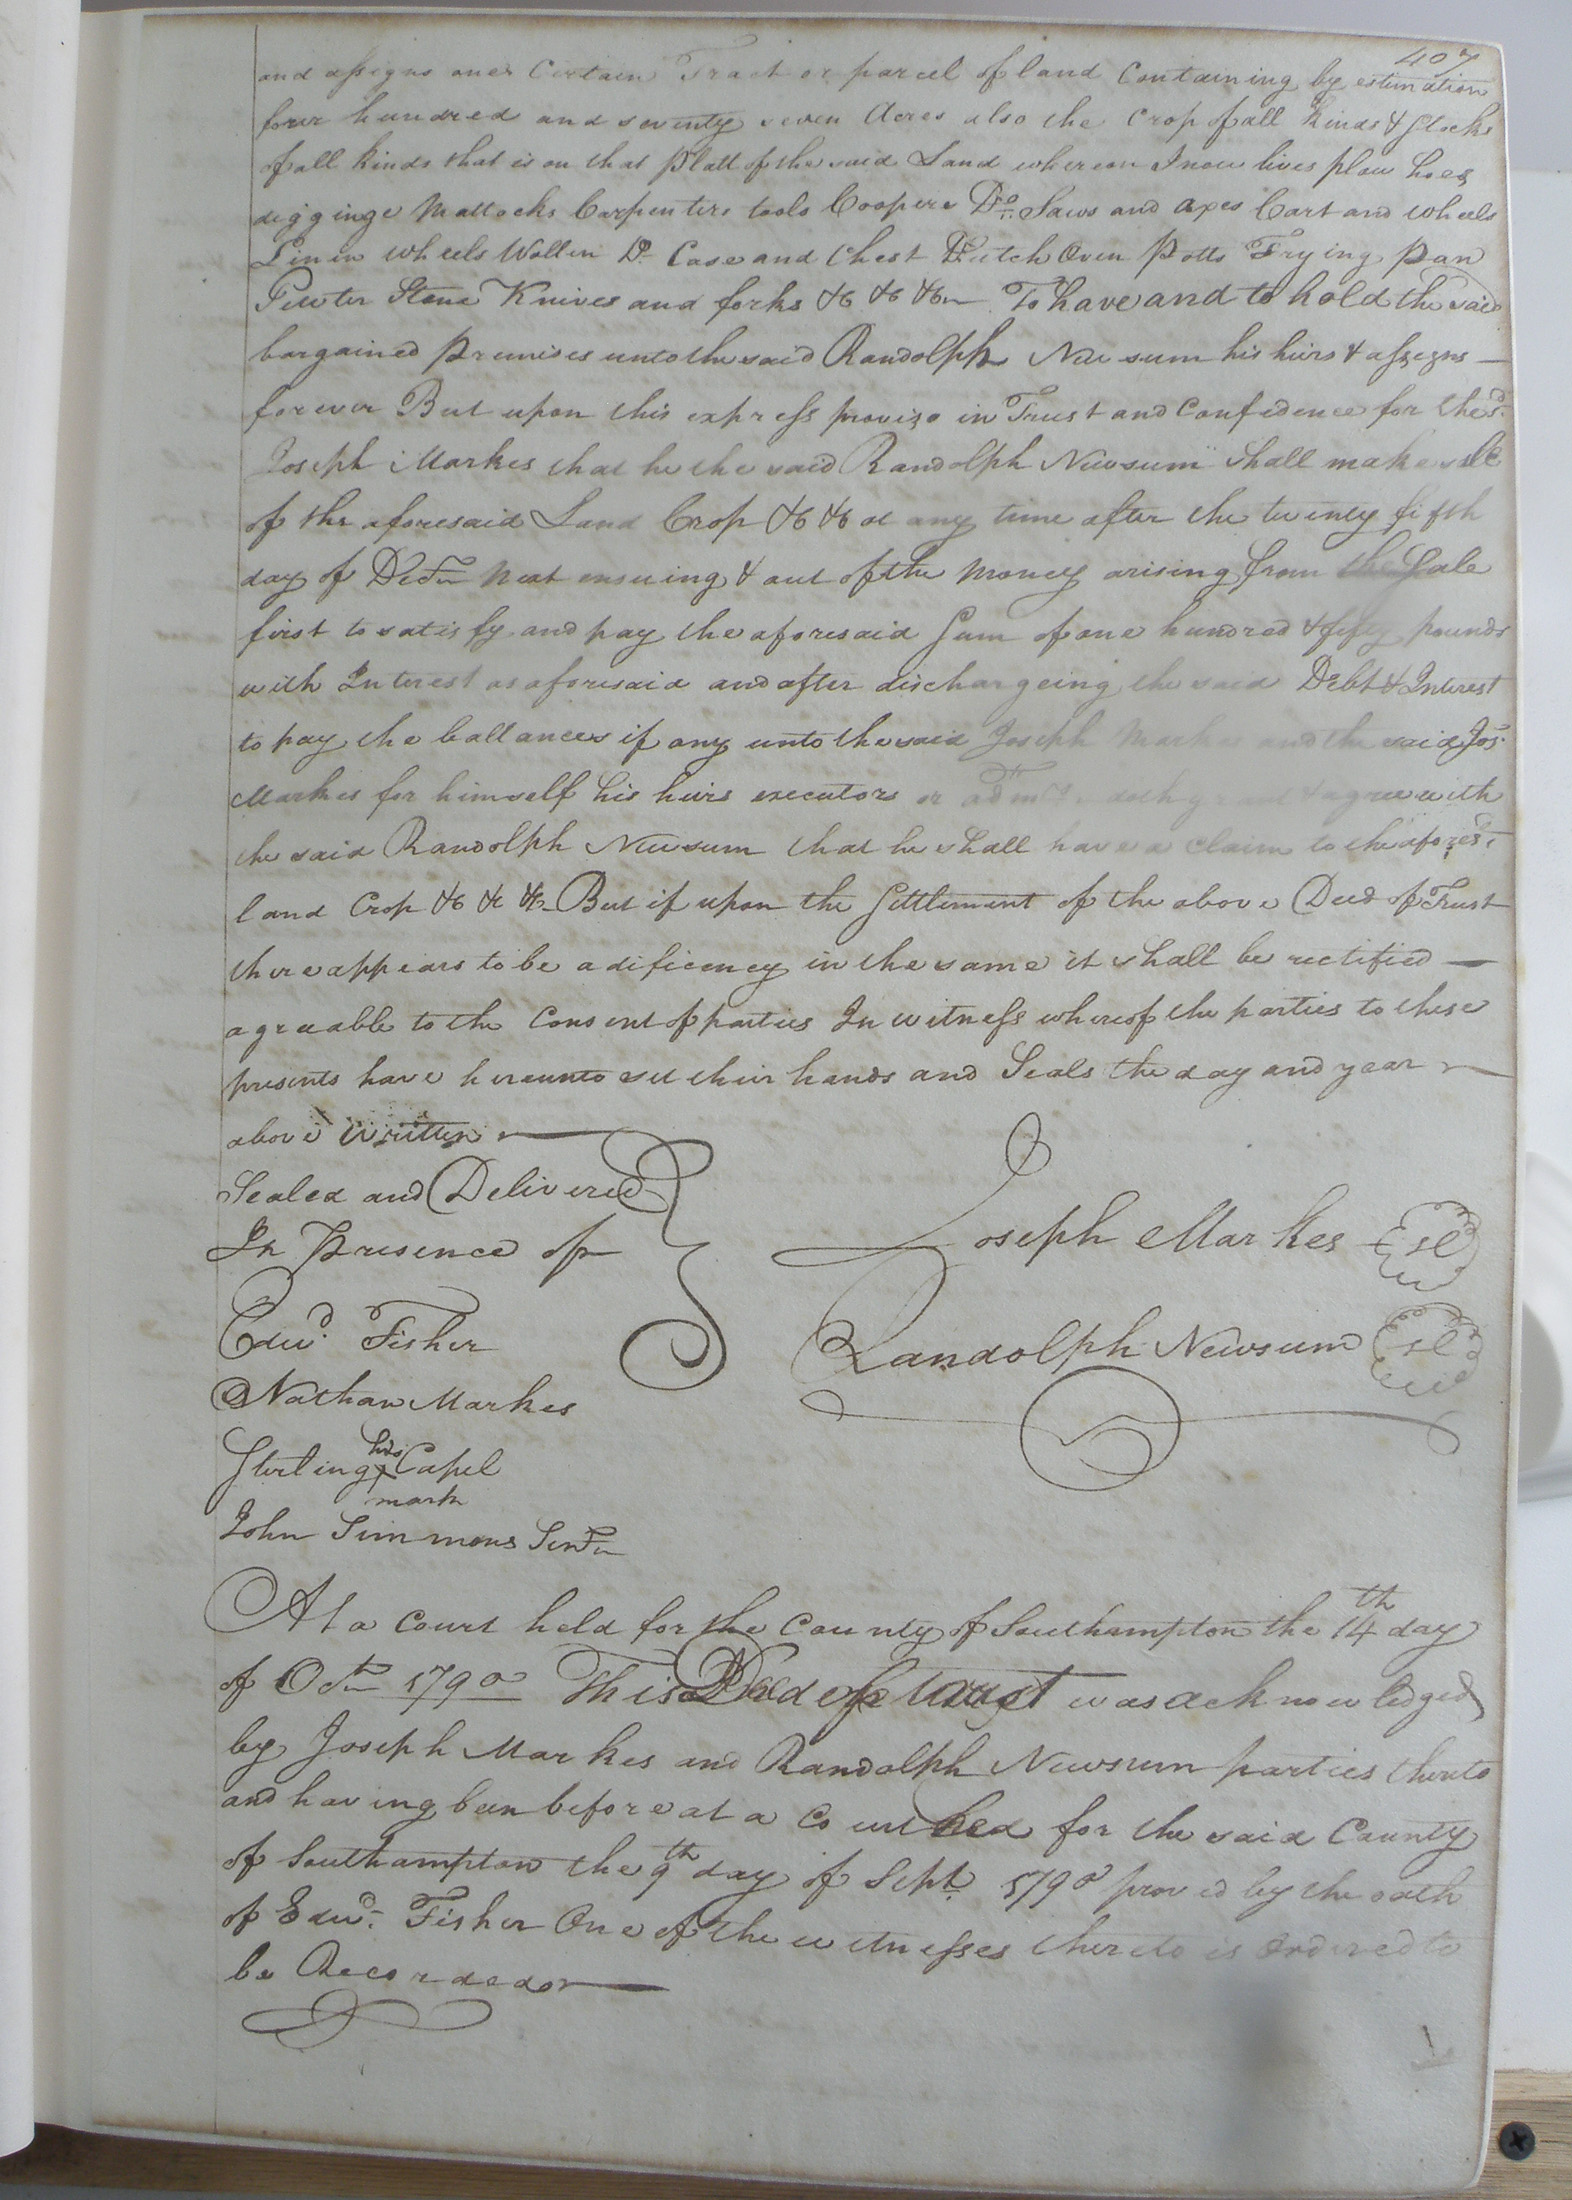 407
and assigns one Certain Tract or parcel of land Containing by estimation
four hundred and seventy seven Acres also the Crop of all kinds & Stocks
of all kinds that is on that Platt of the said Land whereon I now lives plow hoes
diggings Mattocks Carpenters tools Coopers Do. Saws and axes Cart and wheels
Linin wheels Wollin Do. Case and Chest Dutch Oven Potts Frying Pan
Pewter Stone Knives and forks &c &c &c To have and to hold the said
bargained Premises unto the said Randolph Newsum his heirs & assigns
forever But upon this express proviso in Trust and Confidence for the sd.
Joseph Markes that he the said Randolph Newsum Shall make sale
of the aforesaid Land Crop &c &c at any time after the twenty fifth
day of Decr. next ensuing & out of the Money arising from the Sale
first to satisfy and pay the aforesaid Sum of one hundred & fifty pounds
with Interest as aforesaid and after dischargeing the said Debt & Interest
to pay the ballances if any unto the said Joseph Markes and the said Jos.
Markes for himself his heirs executors or admrs. doth & agree with
the said Randolph Newsum that he shall have a Claim to the aforesd.
land Crop &c &c &c But if upon the Settlement of the above Deed of Trust
there appears to be a dificency in the same it shall be rectified
agreeable to the Consent of parties In witness whereof the parties to these
presents have hereunto set their hands and Seals the day and year
above Written
Sealed and Delivered
In Presence of
Joseph Markes Sl
Edwd. Fisher
Randolph Newsum Sl
Nathan Markes
his
Sterling x Capel
mark
John Simmons Senr.
At a Court held for the County of Southampton the 14th day
of Octr. 1790 This Deed of trust was acknowledged
by Joseph Markes and Randolph Newsum parties thereto
and having been before at a Court held for the said County
of Southampton the 9th day of Sept. 1790 proved by the oath
of Edwd. Fisher One of the witnesses thereto is Ordered to
be Recorded